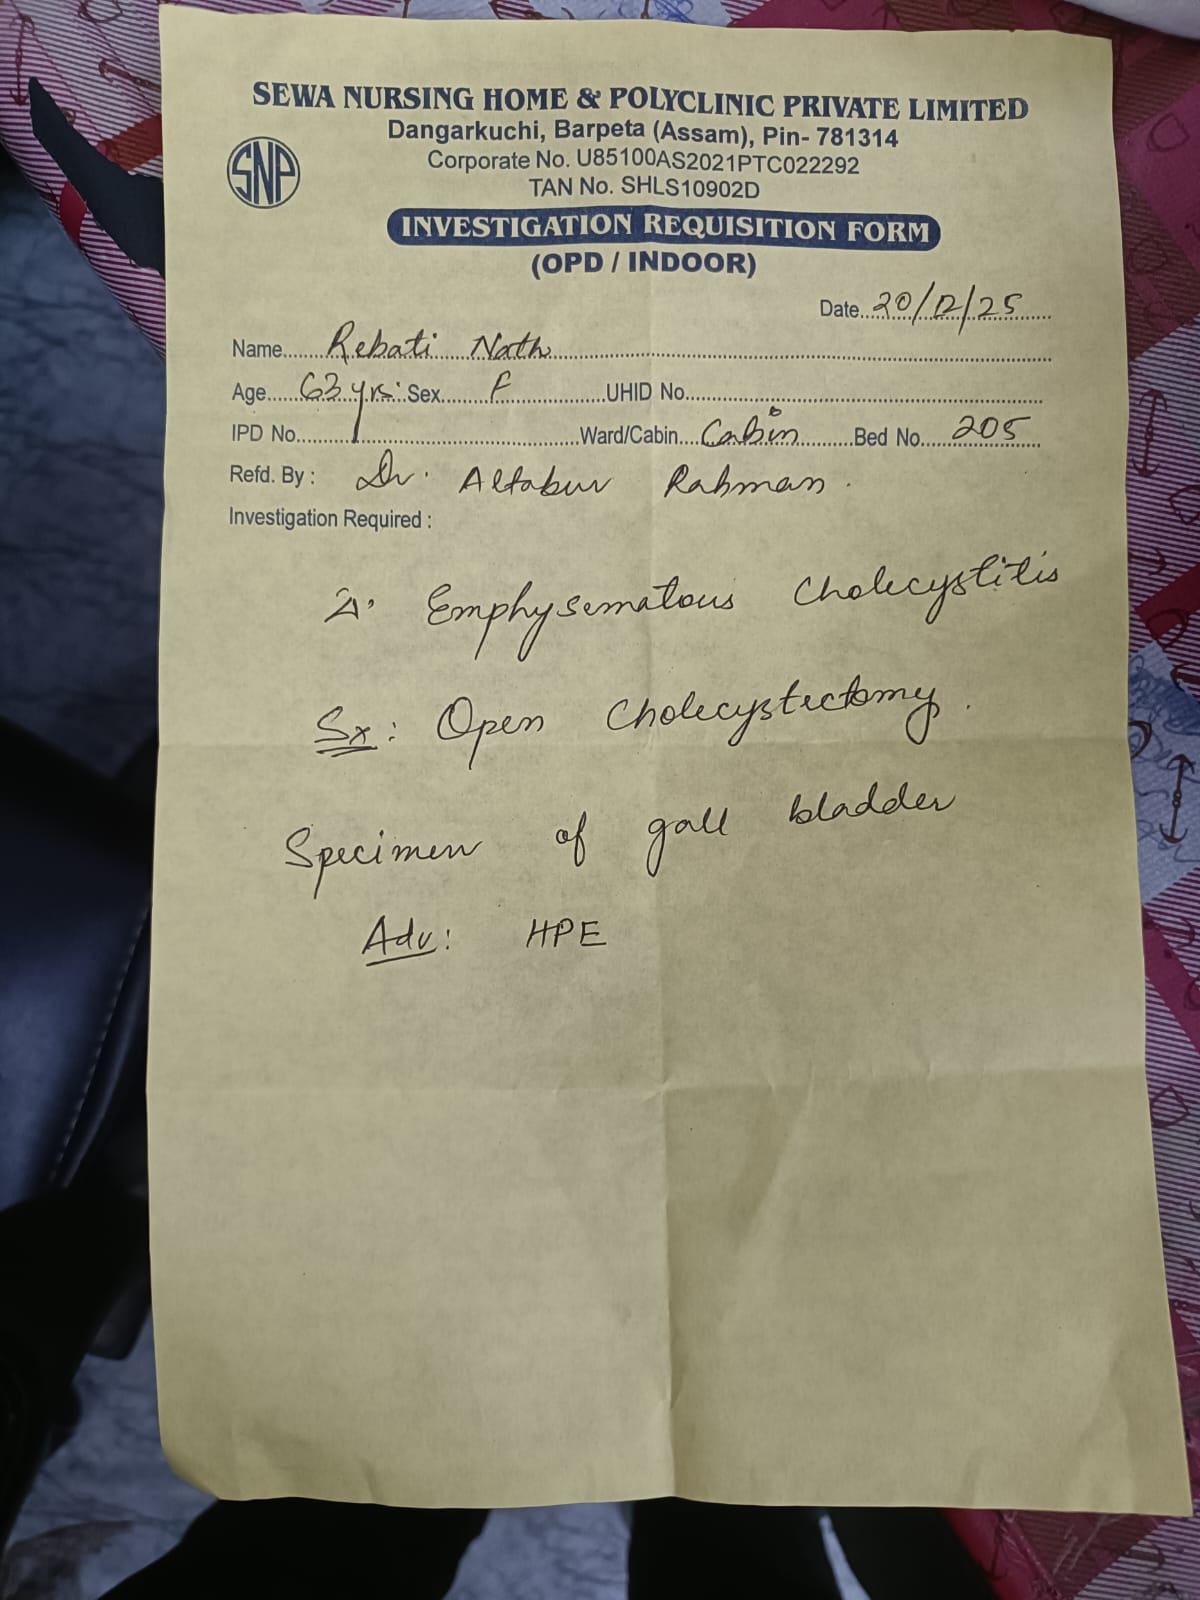 SEWA NURSING HOME & POLYCLINIC PRIVATE LIMITED
Dangarkuchi, Barpeta (Assam), Pin- 781314
Corporate No. U85100AS2021PTC022292
TAN No. SHLS10902D
SNP
INVESTIGATION REQUISITION FORM
(OPD / INDOOR)
Date 20/12/25
Name Rebati Nath
Age 63 yrs. Sex F UHID No.
IPD No. Ward/Cabin Cabin Bed No. 205
Refd. By : Dr. Altabur Rahman.
Investigation Required :
Emphysematous Cholecystitis
Sx: Open Cholecystectomy.
Specimen of gall bladder
Adv: HPE